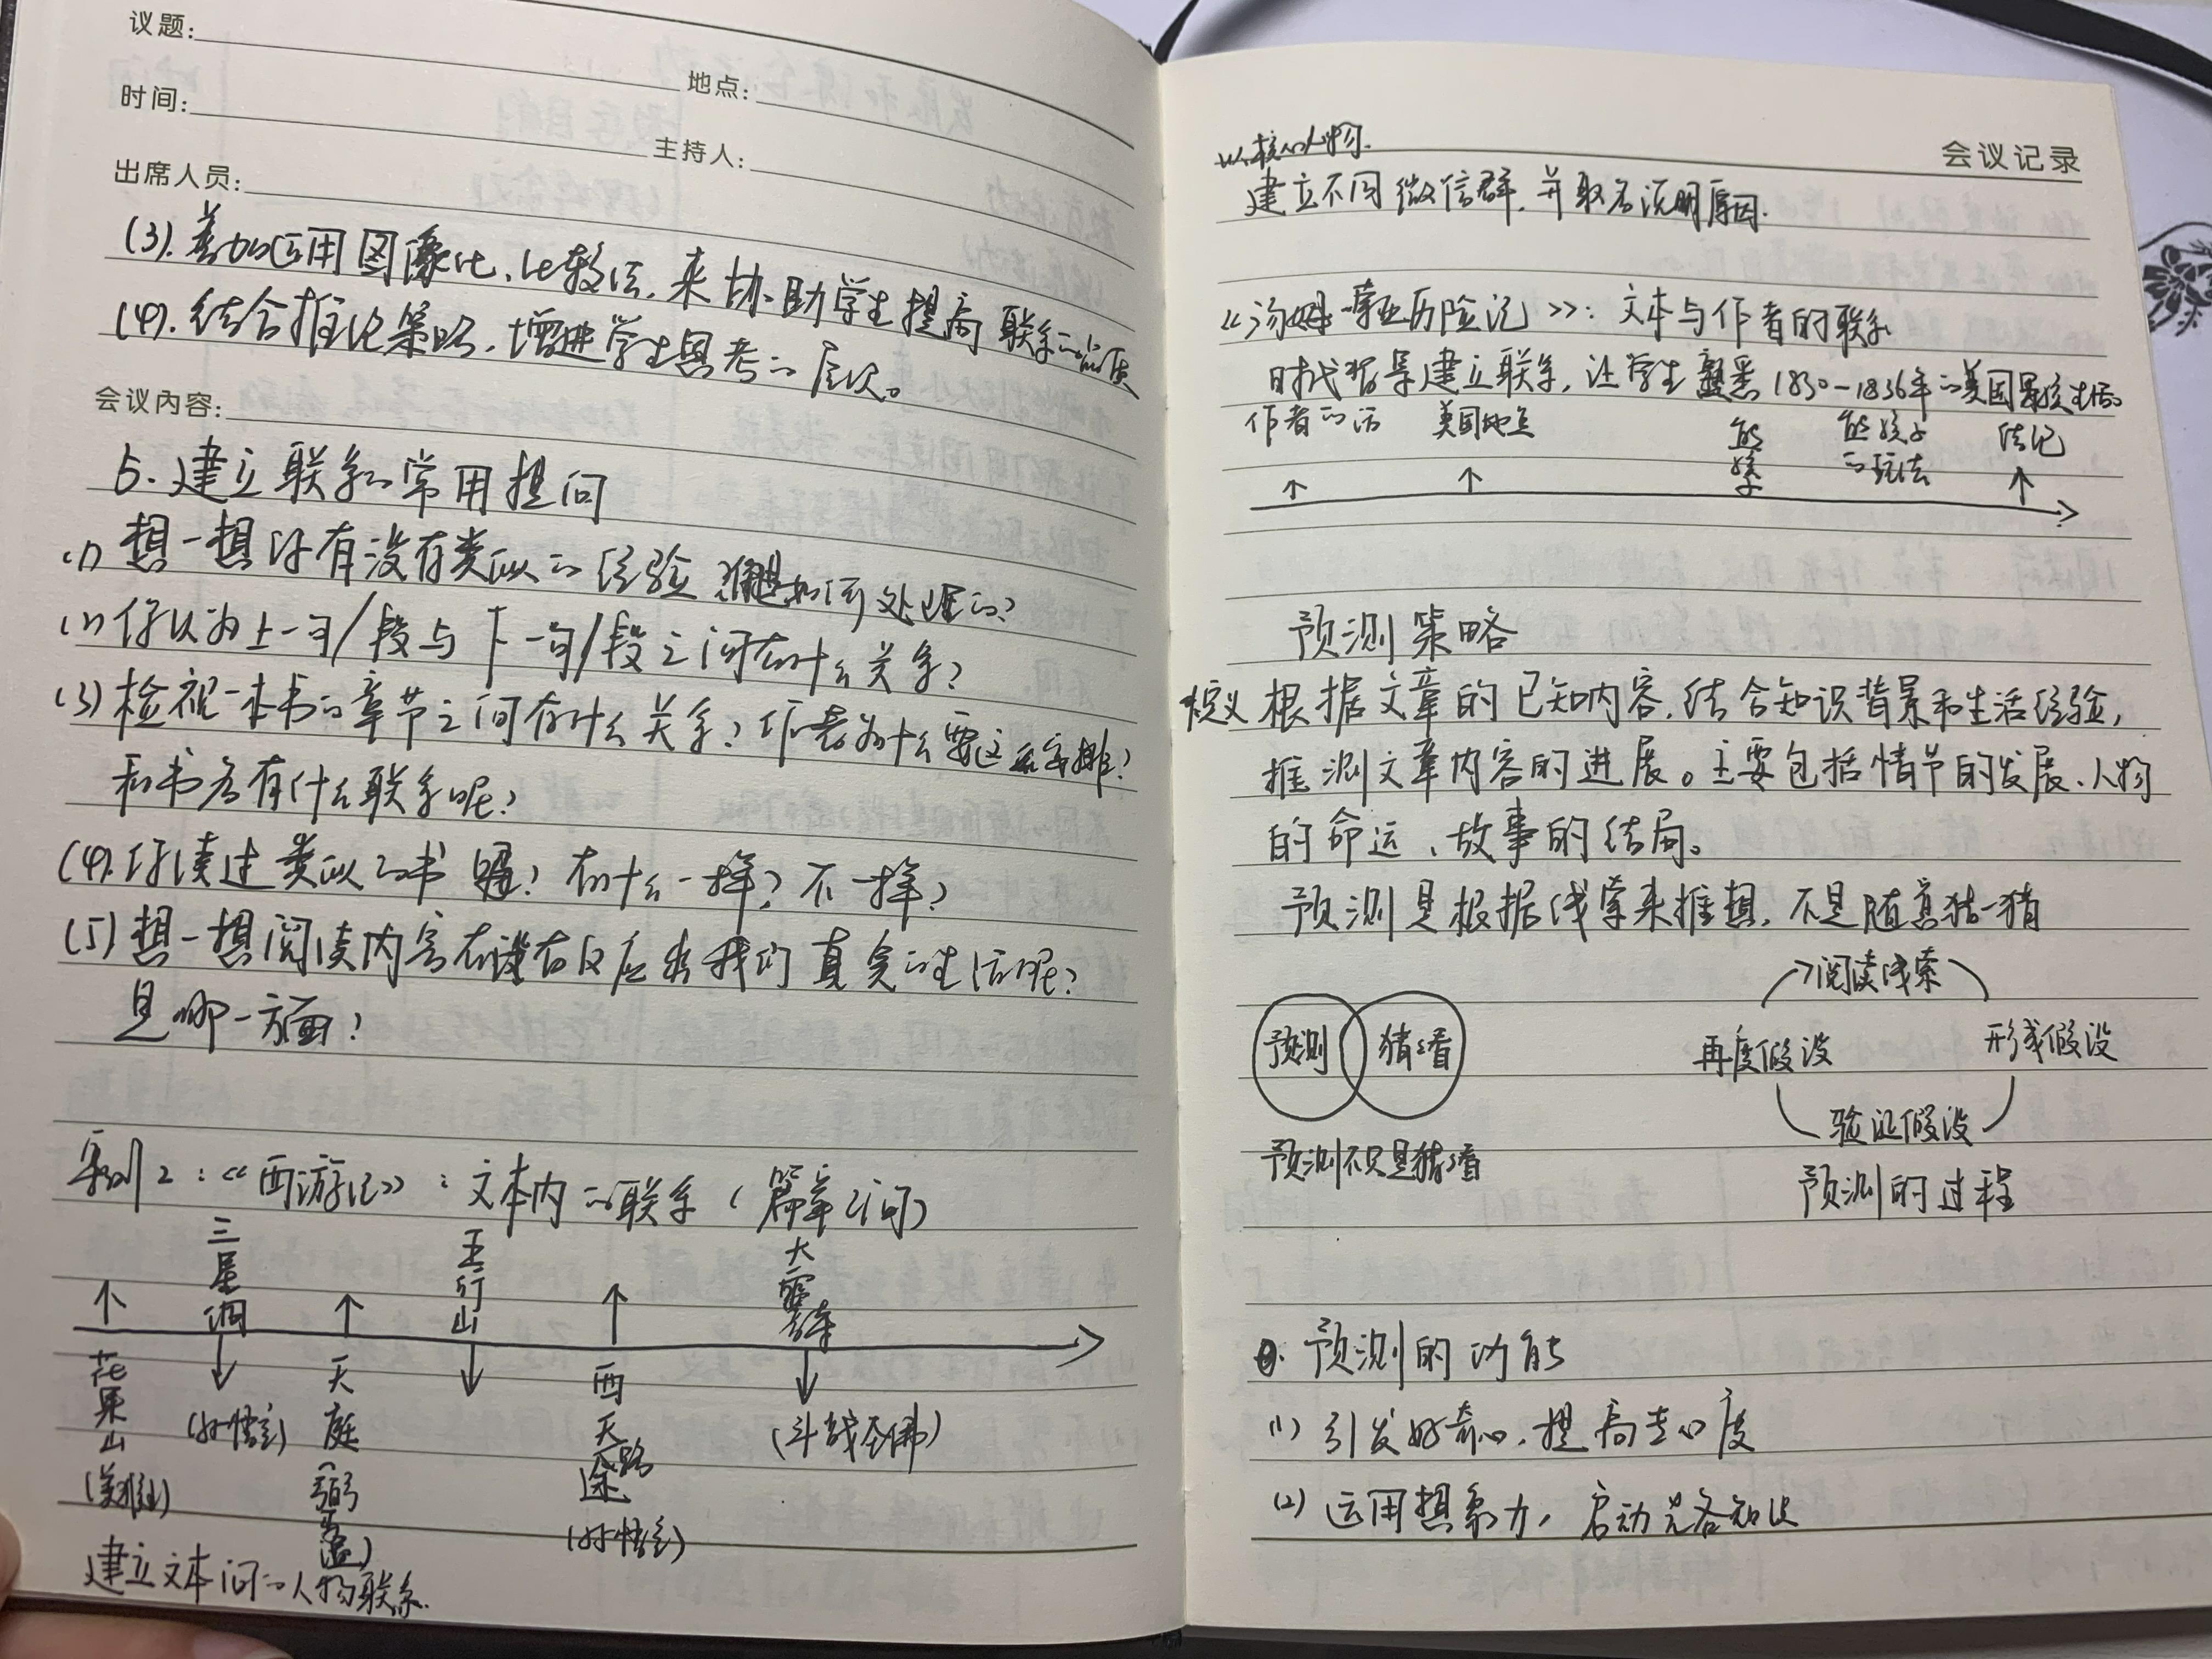 议题:
地点:
时间:
主持人:
出席人员:
(3). 善加运用图像化、比较法,来协助学生提高联系的品质
(4). 结合推论策略,增进学生思考的层次。
会议内容:
5. 建立联系的常用提问
(1) 想一想你有没有类似的经验?是如何处理的?
(2) 你以为上一句/段与下一句/段之间有什么关系?
(3) 检视一本书的章节之间有什么关系?作者为什么要这么安排?
和书名有什么联系呢?
(4). 你读过类似的书吗?有什么一样?不一样?
(5) 想一想阅读内容有没有反应出我们真实的生活呢?
是哪一方面?
案例2:《西游记》:文本内的联系(篇章之间)
三星洞
五行山
大雷音寺
花果山
(美猴王)
(孙悟空)
天庭
(弼马温)
西天路途
(孙悟空)
(斗战圣佛)
建立文本间的人物联系.
会议记录
以核心人物.
建立不同微信群,并取名说明原因.
《汤姆·索亚历险记》:文本与作者的联系
时代背景建立联系,让学生熟悉1830-1836年的美国男孩生活
作者的话
美国地点
熊孩子
熊孩子的玩法
结记
预测策略
定义 根据文章的已知内容,结合知识背景和生活经验,
推测文章内容的进展。主要包括情节的发展、人物
的命运、故事的结局。
预测是根据线索来推想,不是随意猜一猜
阅读线索
预测
猜猜看
再度假设
形成假设
验证假设
预测不只是猜猜看
预测的过程
预测的功能
(1) 引发好奇心,提高专心度
(2) 运用想象力,启动先备知识